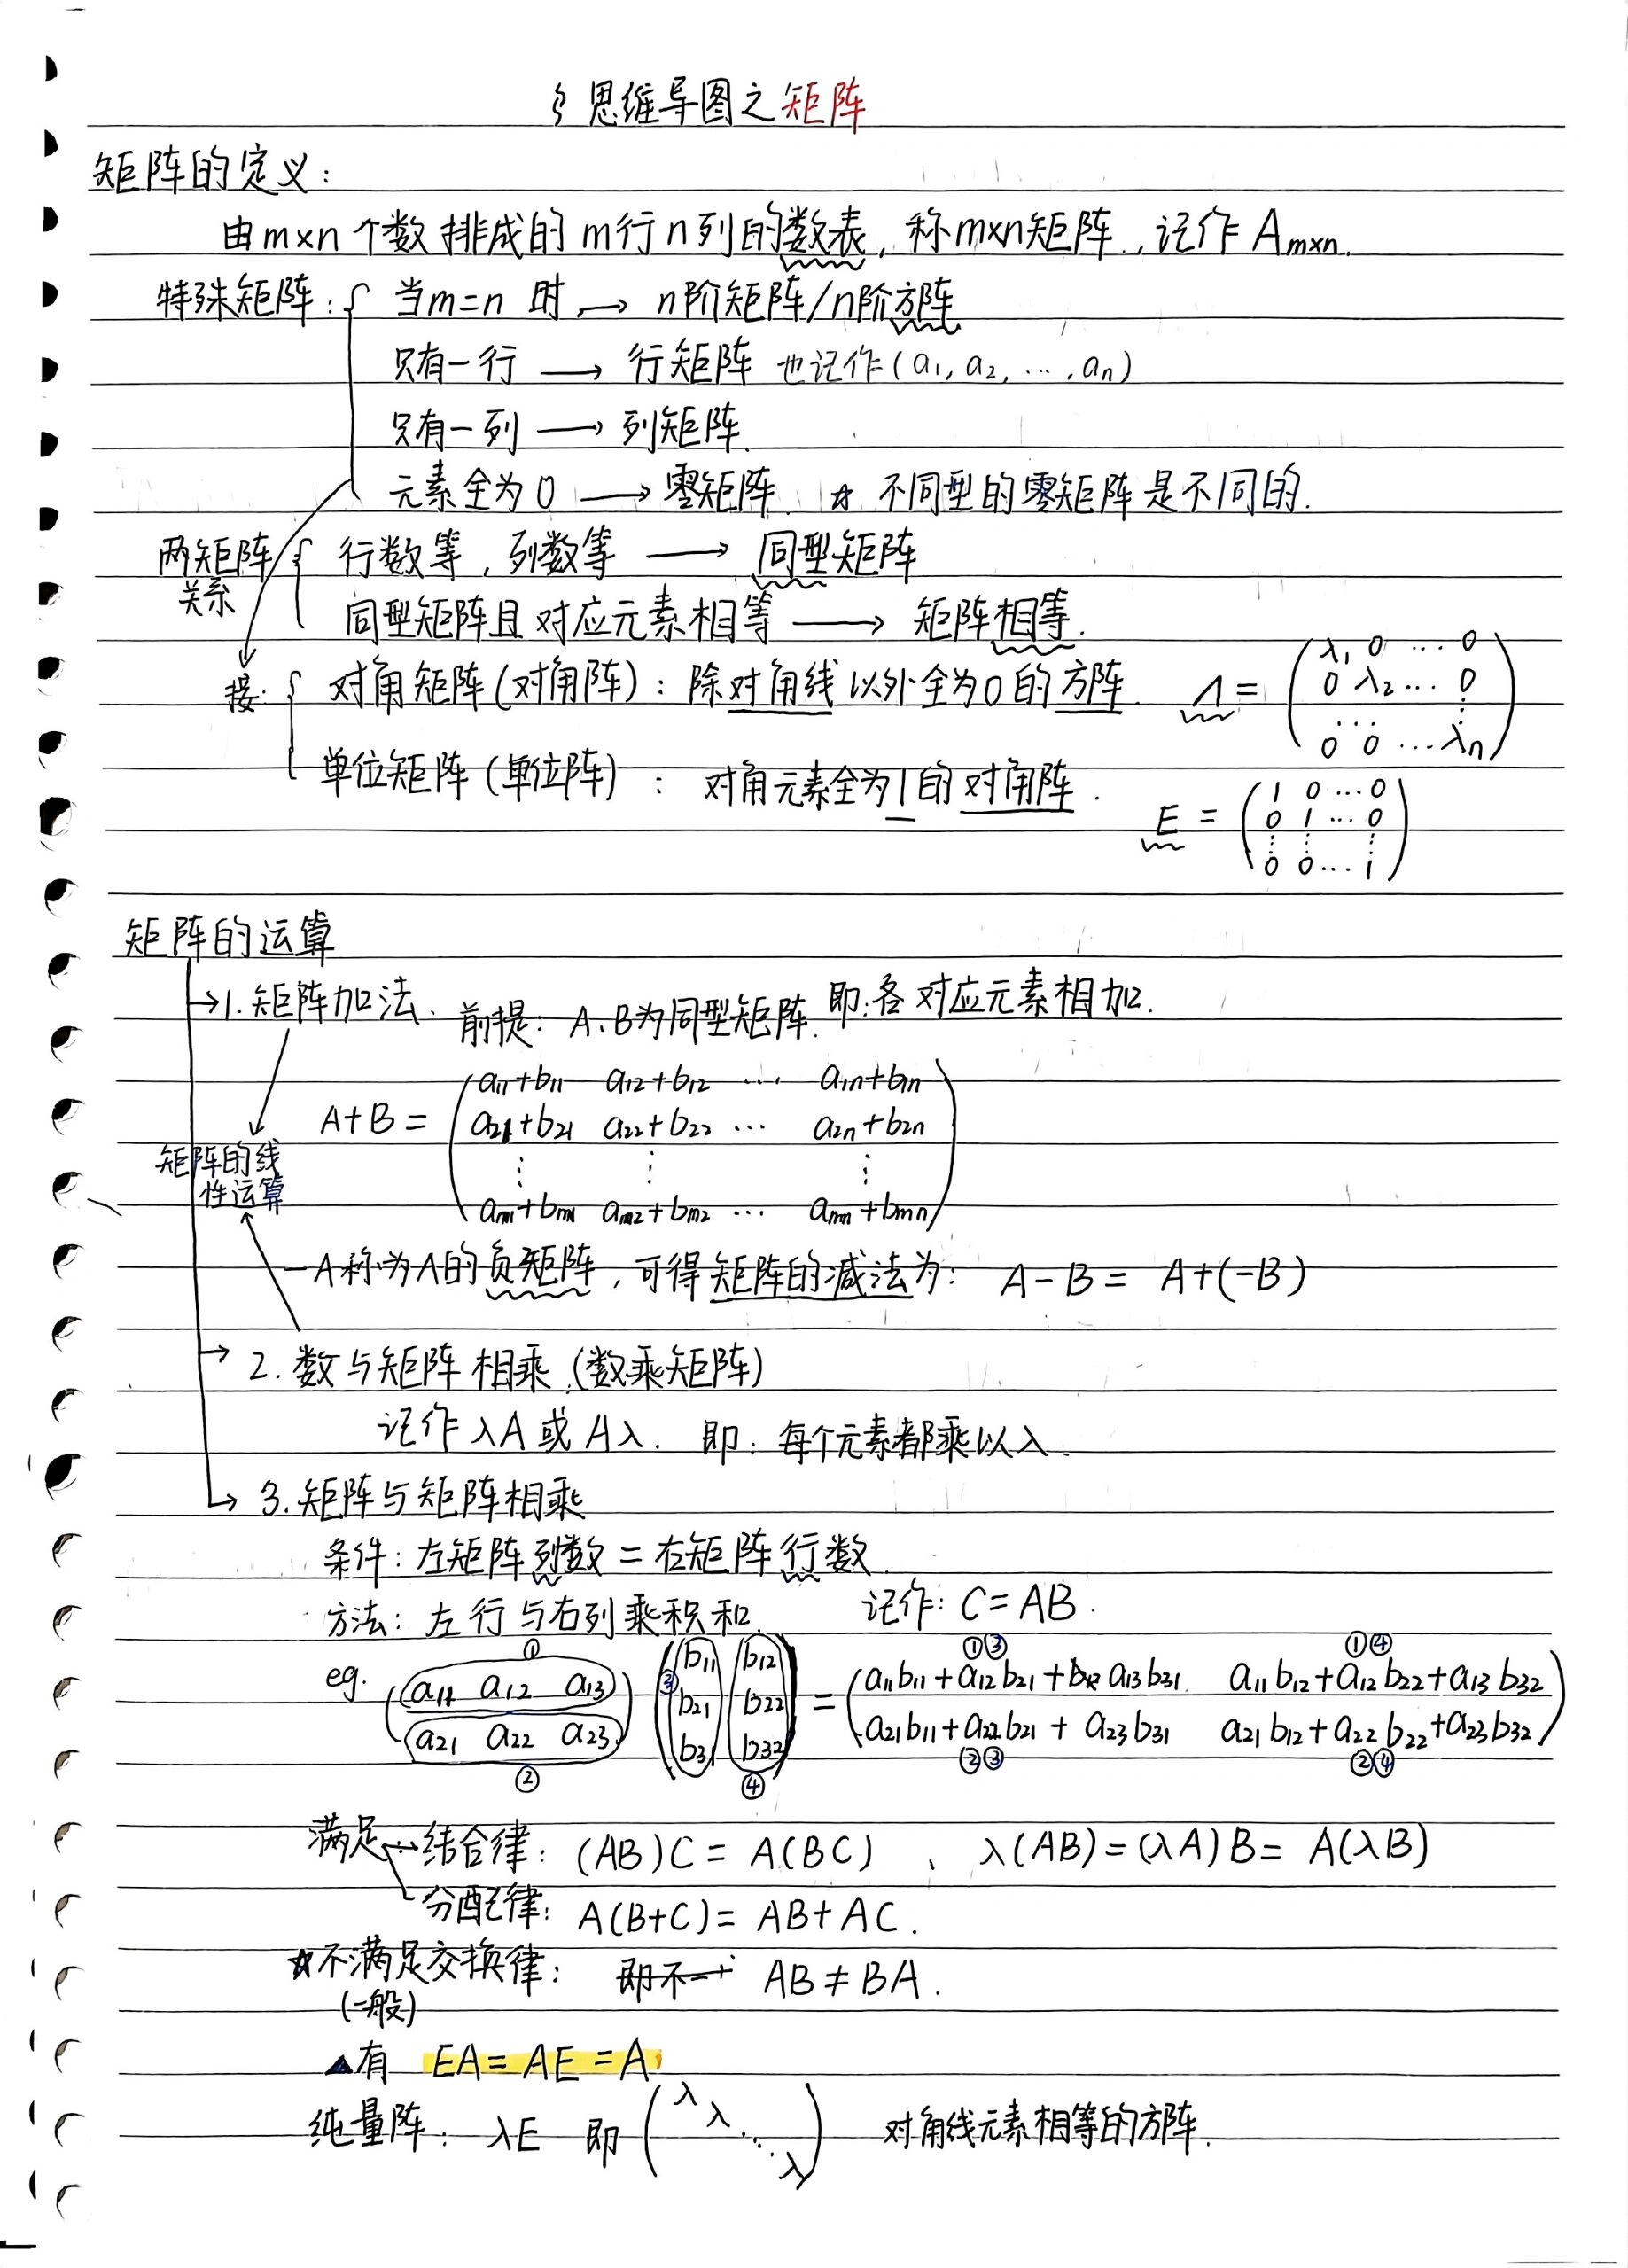 § 思维导图之矩阵
矩阵的定义：
由m×n个数排成的m行n列的数表，称m×n矩阵，记作Aₘₓₙ.
特殊矩阵：{ 当m=n 时 → n阶矩阵/n阶方阵
只有一行 → 行矩阵 也记作(a₁, a₂, …, aₙ)
只有一列 → 列矩阵.
元素全为0 → 零矩阵. ☆ 不同型的零矩阵是不同的.
两矩阵关系 { 行数等，列数等 → 同型矩阵
同型矩阵且对应元素相等 → 矩阵相等.
接：{ 对角矩阵(对角阵)：除对角线以外全为0的方阵. Λ = (λ₁ 0 … 0
0 λ₂ … 0
… ⋮
0 0 … λₙ)
单位矩阵(单位阵)：对角元素全为1的对角阵.
E = (1 0 … 0
0 1 … 0
⋮ ⋮ ⋮
0 0 … 1)
矩阵的运算
→1. 矩阵加法. 前提：A、B为同型矩阵. 即:各对应元素相加.
A+B = (a₁₁+b₁₁ a₁₂+b₁₂ … a₁ₙ+b₁ₙ
a₂₁+b₂₁ a₂₂+b₂₂ … a₂ₙ+b₂ₙ
⋮ ⋮ ⋮
aₘ₁+bₘ₁ aₘ₂+bₘ₂ … aₘₙ+bₘₙ)
矩阵的线
性运算
−A称为A的负矩阵，可得矩阵的减法为： A−B = A+(−B)
→ 2. 数与矩阵相乘.(数乘矩阵)
记作λA或Aλ. 即：每个元素都乘以λ.
→ 3. 矩阵与矩阵相乘
条件：左矩阵列数 = 右矩阵行数.
方法：左行与右列乘积和. 记作：C=AB.
① ①③ ①④
eg. (a₁₁ a₁₂ a₁₃ ③ (b₁₁ b₁₂ = (a₁₁b₁₁+a₁₂b₂₁+a₁₃b₃₁ a₁₁b₁₂+a₁₂b₂₂+a₁₃b₃₂
b₂₁ b₂₂
a₂₁ a₂₂ a₂₃) b₃₁ b₃₂) a₂₁b₁₁+a₂₂b₂₁+a₂₃b₃₁ a₂₁b₁₂+a₂₂b₂₂+a₂₃b₃₂)
② ④ ②③ ②④
满足 → 结合律：(AB)C = A(BC) 、 λ(AB)=(λA)B= A(λB)
分配律：A(B+C)= AB+AC.
☆不满足交换律： 即不一 AB≠BA.
(一般)
▲有 EA=AE=A
纯量阵：λE 即 (λ λ ⋱ λ) 对角线元素相等的方阵.